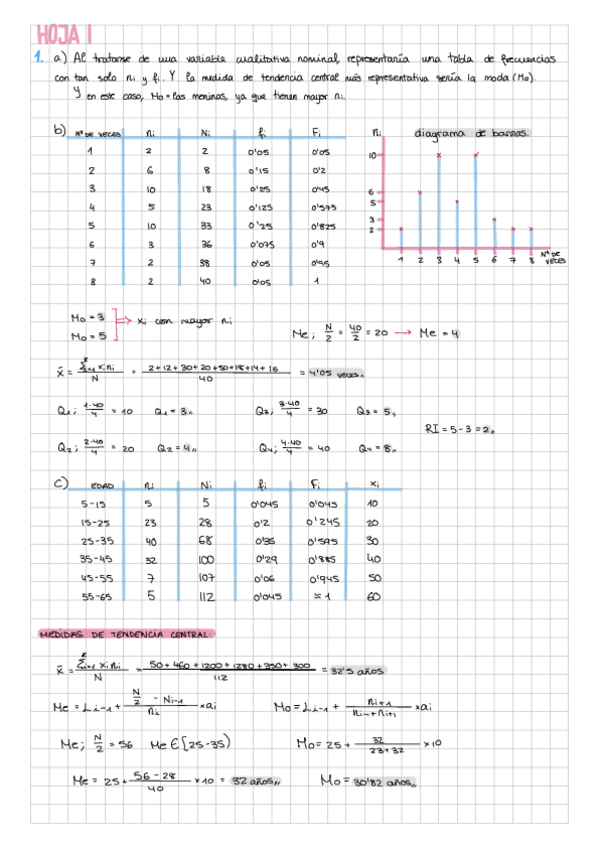 HOJA 1
1. a) Al tratarse de una variable cualitativa nominal, representaría una tabla de frecuencias
con tan solo ni y fi. Y la medida de tendencia central más representativa sería la moda (Mo).
Y en este caso, Mo = las meninas, ya que tienen mayor ni.
b) Nº DE VECES ni Ni fi Fi
1 2 2 0'05 0'05
2 6 8 0'15 0'2
3 10 18 0'25 0'45
4 5 23 0'125 0'575
5 10 33 0'25 0'825
6 3 36 0'075 0'9
7 2 38 0'05 0'95
8 2 40 0'05 1
ni diagrama de barras.
10
6
5
3
2
1 2 3 4 5 6 7 8 Nº DE VECES
Mo = 3
Mo = 5
⇒ xi con mayor ni
Me; N/2 = 40/2 = 20 → Me = 4
x̄ = Σi=1 xi ni / N = 2+12+30+20+50+18+14+16 / 40 = 4'05 veces,,
Q1; 1·40/4 = 10 Q1 = 3,, Q3; 3·40/4 = 30 Q3 = 5,,
RI = 5-3 = 2,,
Q2; 2·40/4 = 20 Q2 = 4,, Q4; 4·40/4 = 40 Q4 = 8,,
c) EDAD ni Ni fi Fi xi
5-15 5 5 0'045 0'045 10
15-25 23 28 0'2 0'245 20
25-35 40 68 0'35 0'595 30
35-45 32 100 0'29 0'885 40
45-55 7 107 0'06 0'945 50
55-65 5 112 0'045 ≈ 1 60
MEDIDAS DE TENDENCIA CENTRAL:
x̄ = Σi=1 xi ni / N = 50+460+1200+1280+350+300 / 112 = 32'5 años
Me = Li-1 + (N/2 - Ni-1) / ni × ai Mo = Li-1 + ni+1 / (ni-1 + ni+1) × ai
Me; N/2 = 56 Me ∈ [25-35) Mo = 25 + 32 / (23+32) × 10
Me = 25 + (56-28) / 40 × 10 = 32 años,, Mo = 30'82 años,,